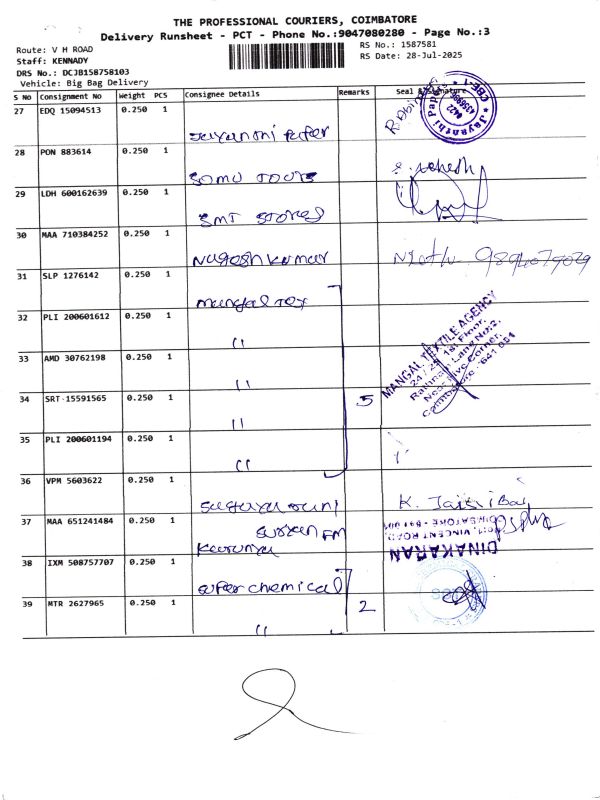 THE PROFESSIONAL COURIERS, COIMBATORE
Delivery Runsheet - PCT - Phone No.:9047080280 - Page No.:3
Route: V H ROAD
RS No.: 1587581
Staff: KENNADY
RS Date: 28-Jul-2025
DRS No.: DCJB158758103
Vehicle: Big Bag Delivery
S No Consignment No Weight PCS Consignee Details Remarks Seal & Signature
27 EDQ 15094513 0.250 1
28 PON 883614 0.250 1
Somu Tours
29 LDH 600162639 0.250 1
SMT Stores
30 MAA 710384252 0.250 1
Nagesh Kumar
9894079029
31 SLP 1276142 0.250 1
mangal Tex
32 PLI 200601612 0.250 1
"
33 AMD 30762198 0.250 1
"
34 SRT 15591565 0.250 1 5
"
35 PLI 200601194 0.250 1
"
MANGAL TEXTILE AGENCY
1st Floor,
36 VPM 5603622 0.250 1
K.
37 MAA 651241484 0.250 1
DINAKARAN
VINCENT ROAD,
COIMBATORE - 641 001
38 IXM 508757707 0.250 1
super chemical
39 MTR 2627965 0.250 1 2
"